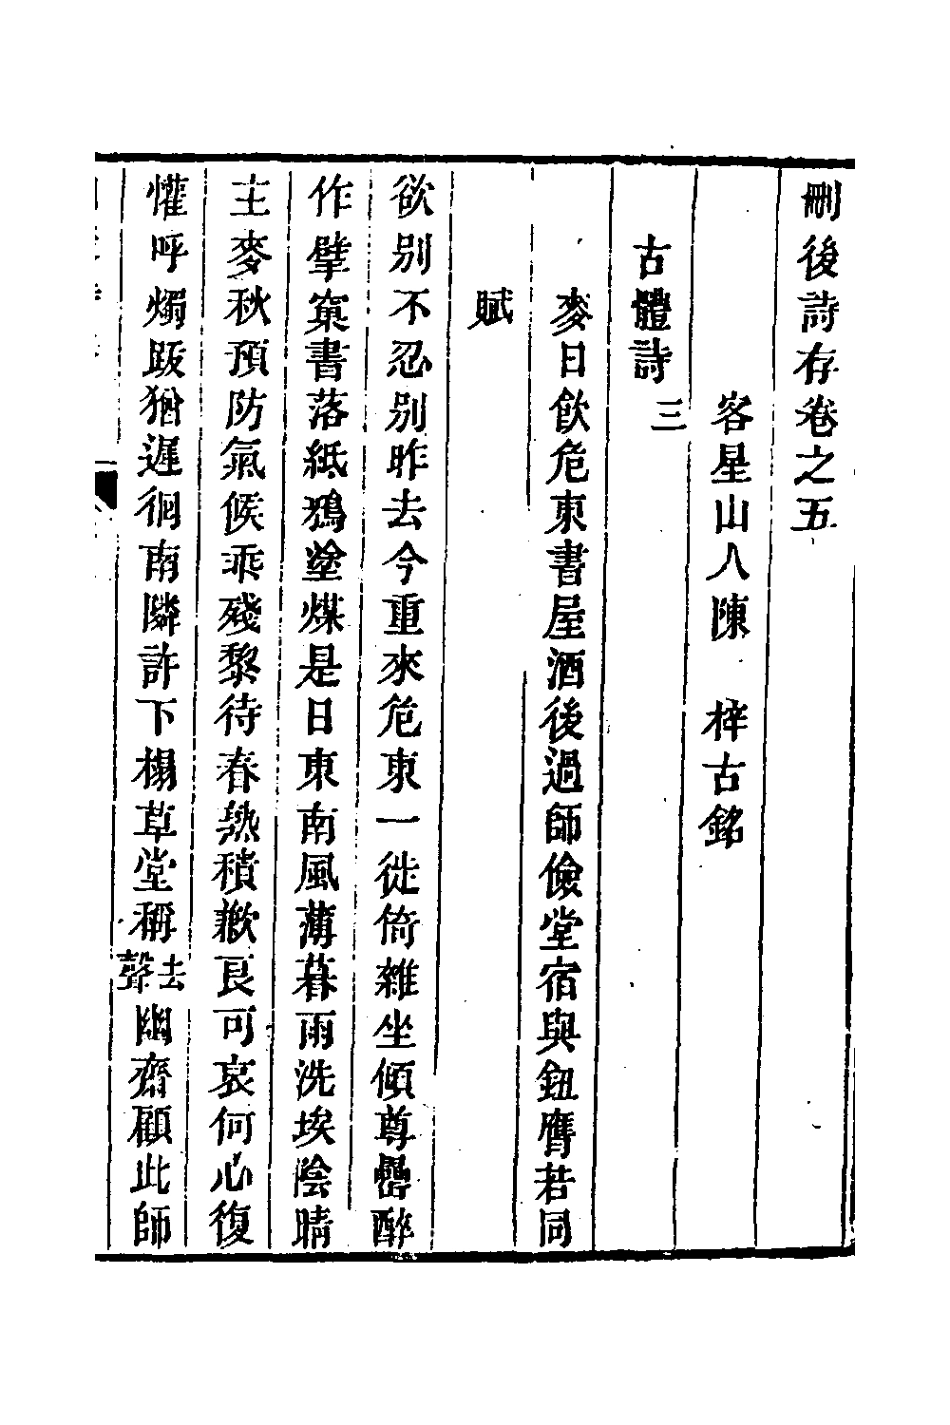 刪後詩存卷之五
客星山人陳　梓古銘
古體詩三
麥日飲危東書屋酒後過師儉堂宿與鈕膺若同
賦
欲别不忍别昨去今重來危東一徙倚雜坐傾尊罍醉
作擘窠書落紙鴉塗煤是日東南風薄暮雨洗埃陰晴
主麥秋預防氣候乖殘黎待春熟積歉良可哀何心復
懽呼燭跋猶遲徊南隣許下榻草堂稱去聲幽齋顧此師